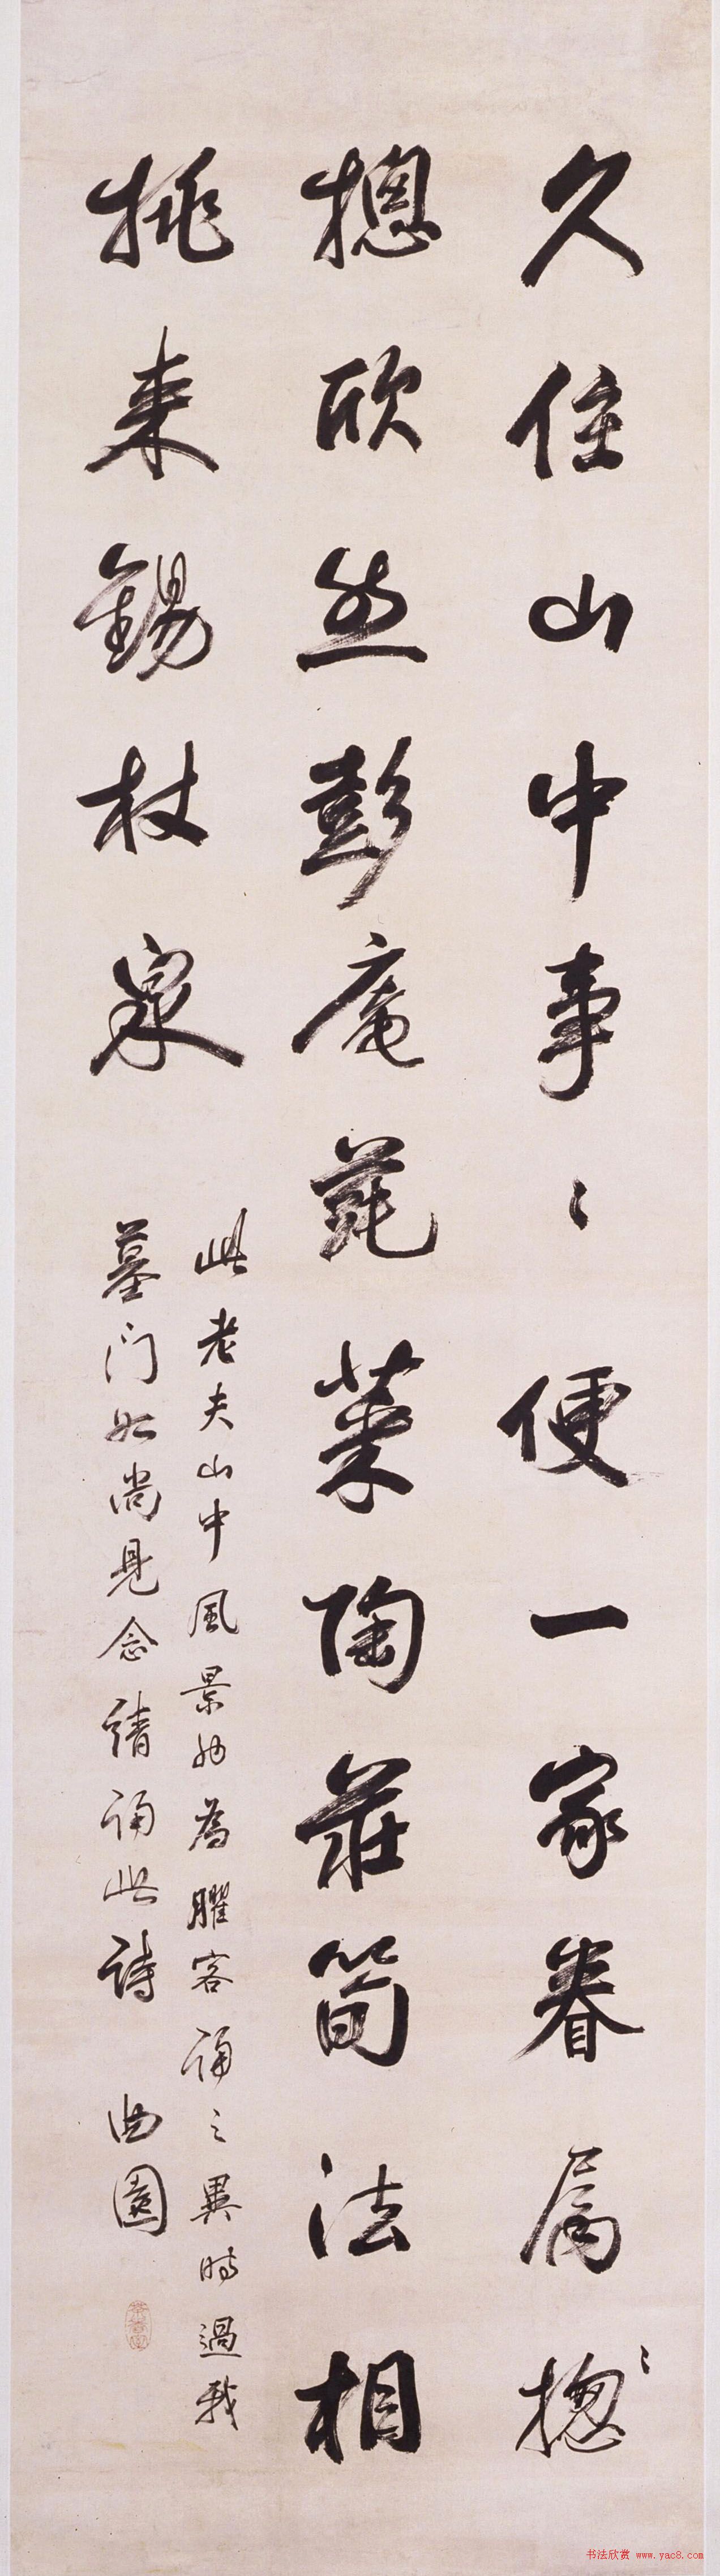 久住山中事〻便一家眷属揔〻
摠欣然彭庵蓴菜陶莊筍法相
挑来錫杖泉
此老夫山中風景為臞客誦之異時過我
墓門如尚見念請誦此詩 曲園
书法欣赏 www.yac8.com